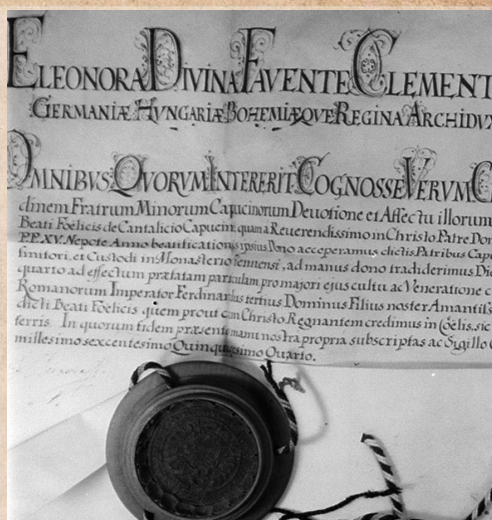 ELEONORA DIVINA FAVENTE CLEMENT
GERMANIÆ HVNGARIÆ BOHEMIÆQVE REGINA ARCHIDVX
OMNIBVS QVORVM INTERERIT COGNOSSE VERVM C
dinem Fratrum Minorum Capucinorum Deuotione et Affectu illorum
Beati Fœlicis de Cantalicio Capucini quam a Reuerendissimo in Christo Patre Don
P.P. XV. Nepote Anno beatificationis ipsius Dono acceperamus dictis Patribus Capu
finitori, et Custodi in Monasterio Viennensi, ad manus dono tradiderimus Die
quarto ad effectum præfatam particulam pro majori ejus cultu ac Veneratione c
Romanorum Imperator Ferdinandus tertius Dominus Filius noster Amantiss
dicti Beati Fœlicis quem prout cum Christo Regnantem credimus in Cœlis, sic
terris. In quorum fidem præsentes manu nostra propria subscriptas ac Sigillo
millesimo sexcentesimo Quinquagesimo Quarto.